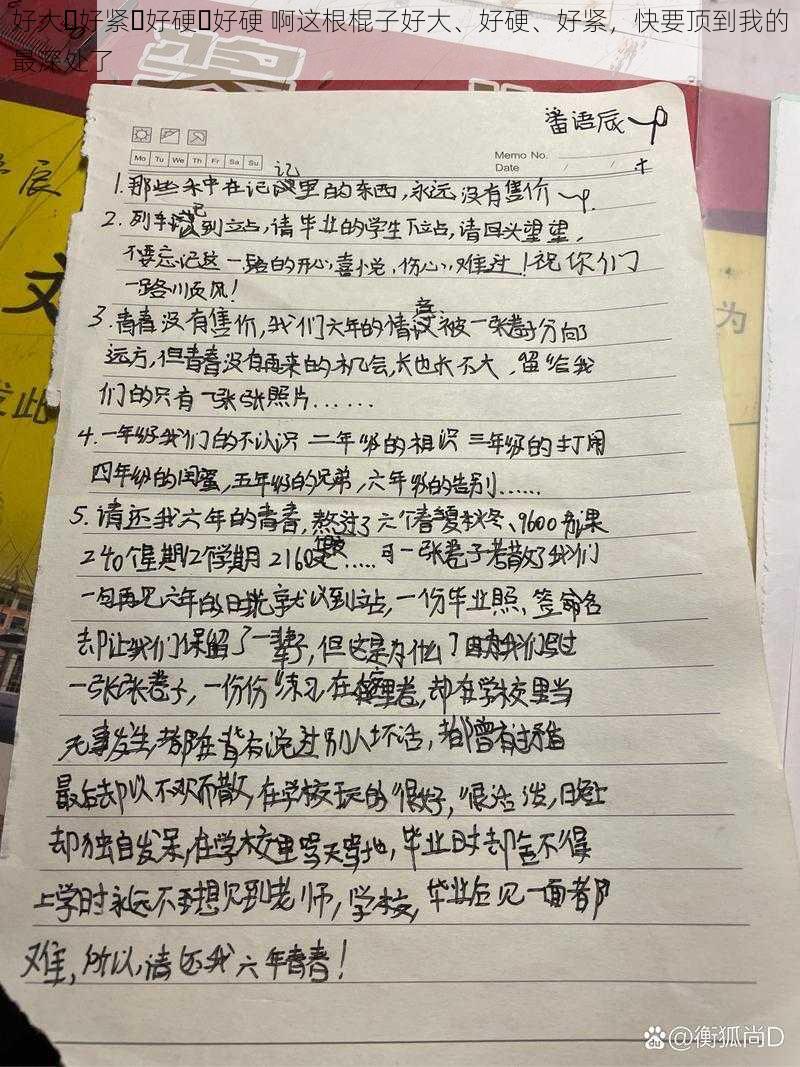 潘语辰
Mo Tu We Th Fr Sa Su
Memo No.
Date
1.那些 在记 里的东西,永远没有售价
2.列车 到立占,请毕业的学生下立占,请回头望望,
不要忘记这一路的开心,喜悦,伤心,难过!祝你们
一路川页风!
3.青春没有售价,我们六年的情 被一张卷子分向
远方,但青春没有再来的机会,长也长不大,留给我
们的只有一张张照片......
4.一年级我们的不认识 二年级的相识 三年级的打闹
四年级的闺蜜,五年级的兄弟,六年级的告别......
5.请还我六年的青春,熬过了六个春夏秋冬、9600节课
240个星期12个学期2160 ..... 一张卷子 散了我们
一句再见六年的 到立占,一份毕业照,签 名
却让我们保留了一辈子,但这是为什么? 我们写过
一张张卷子,一份份练习,在 里卷,却在学校里当
无事发生,都在背右说过别人坏话,都曾有过矛盾
最后却以不欢而散,在学校玩的很好,很活泼,日免上
却独自发呆,在学校里骂天骂地,毕业时却舍不得
上学时永远不再想见到老师,学校,毕业后见一面都
难,所以,请还我六年青春!
@衡狐尚D